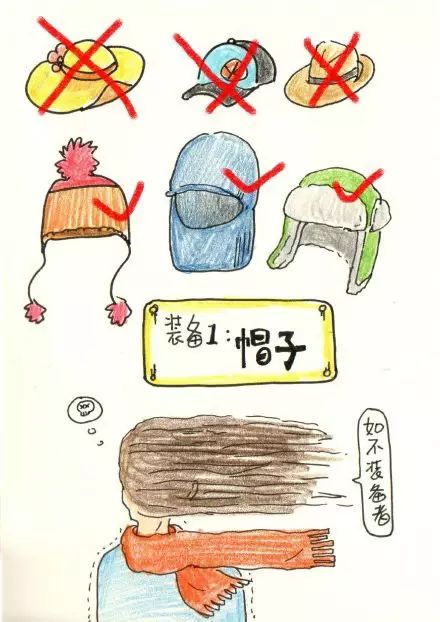 装备1:帽子
如不装备者